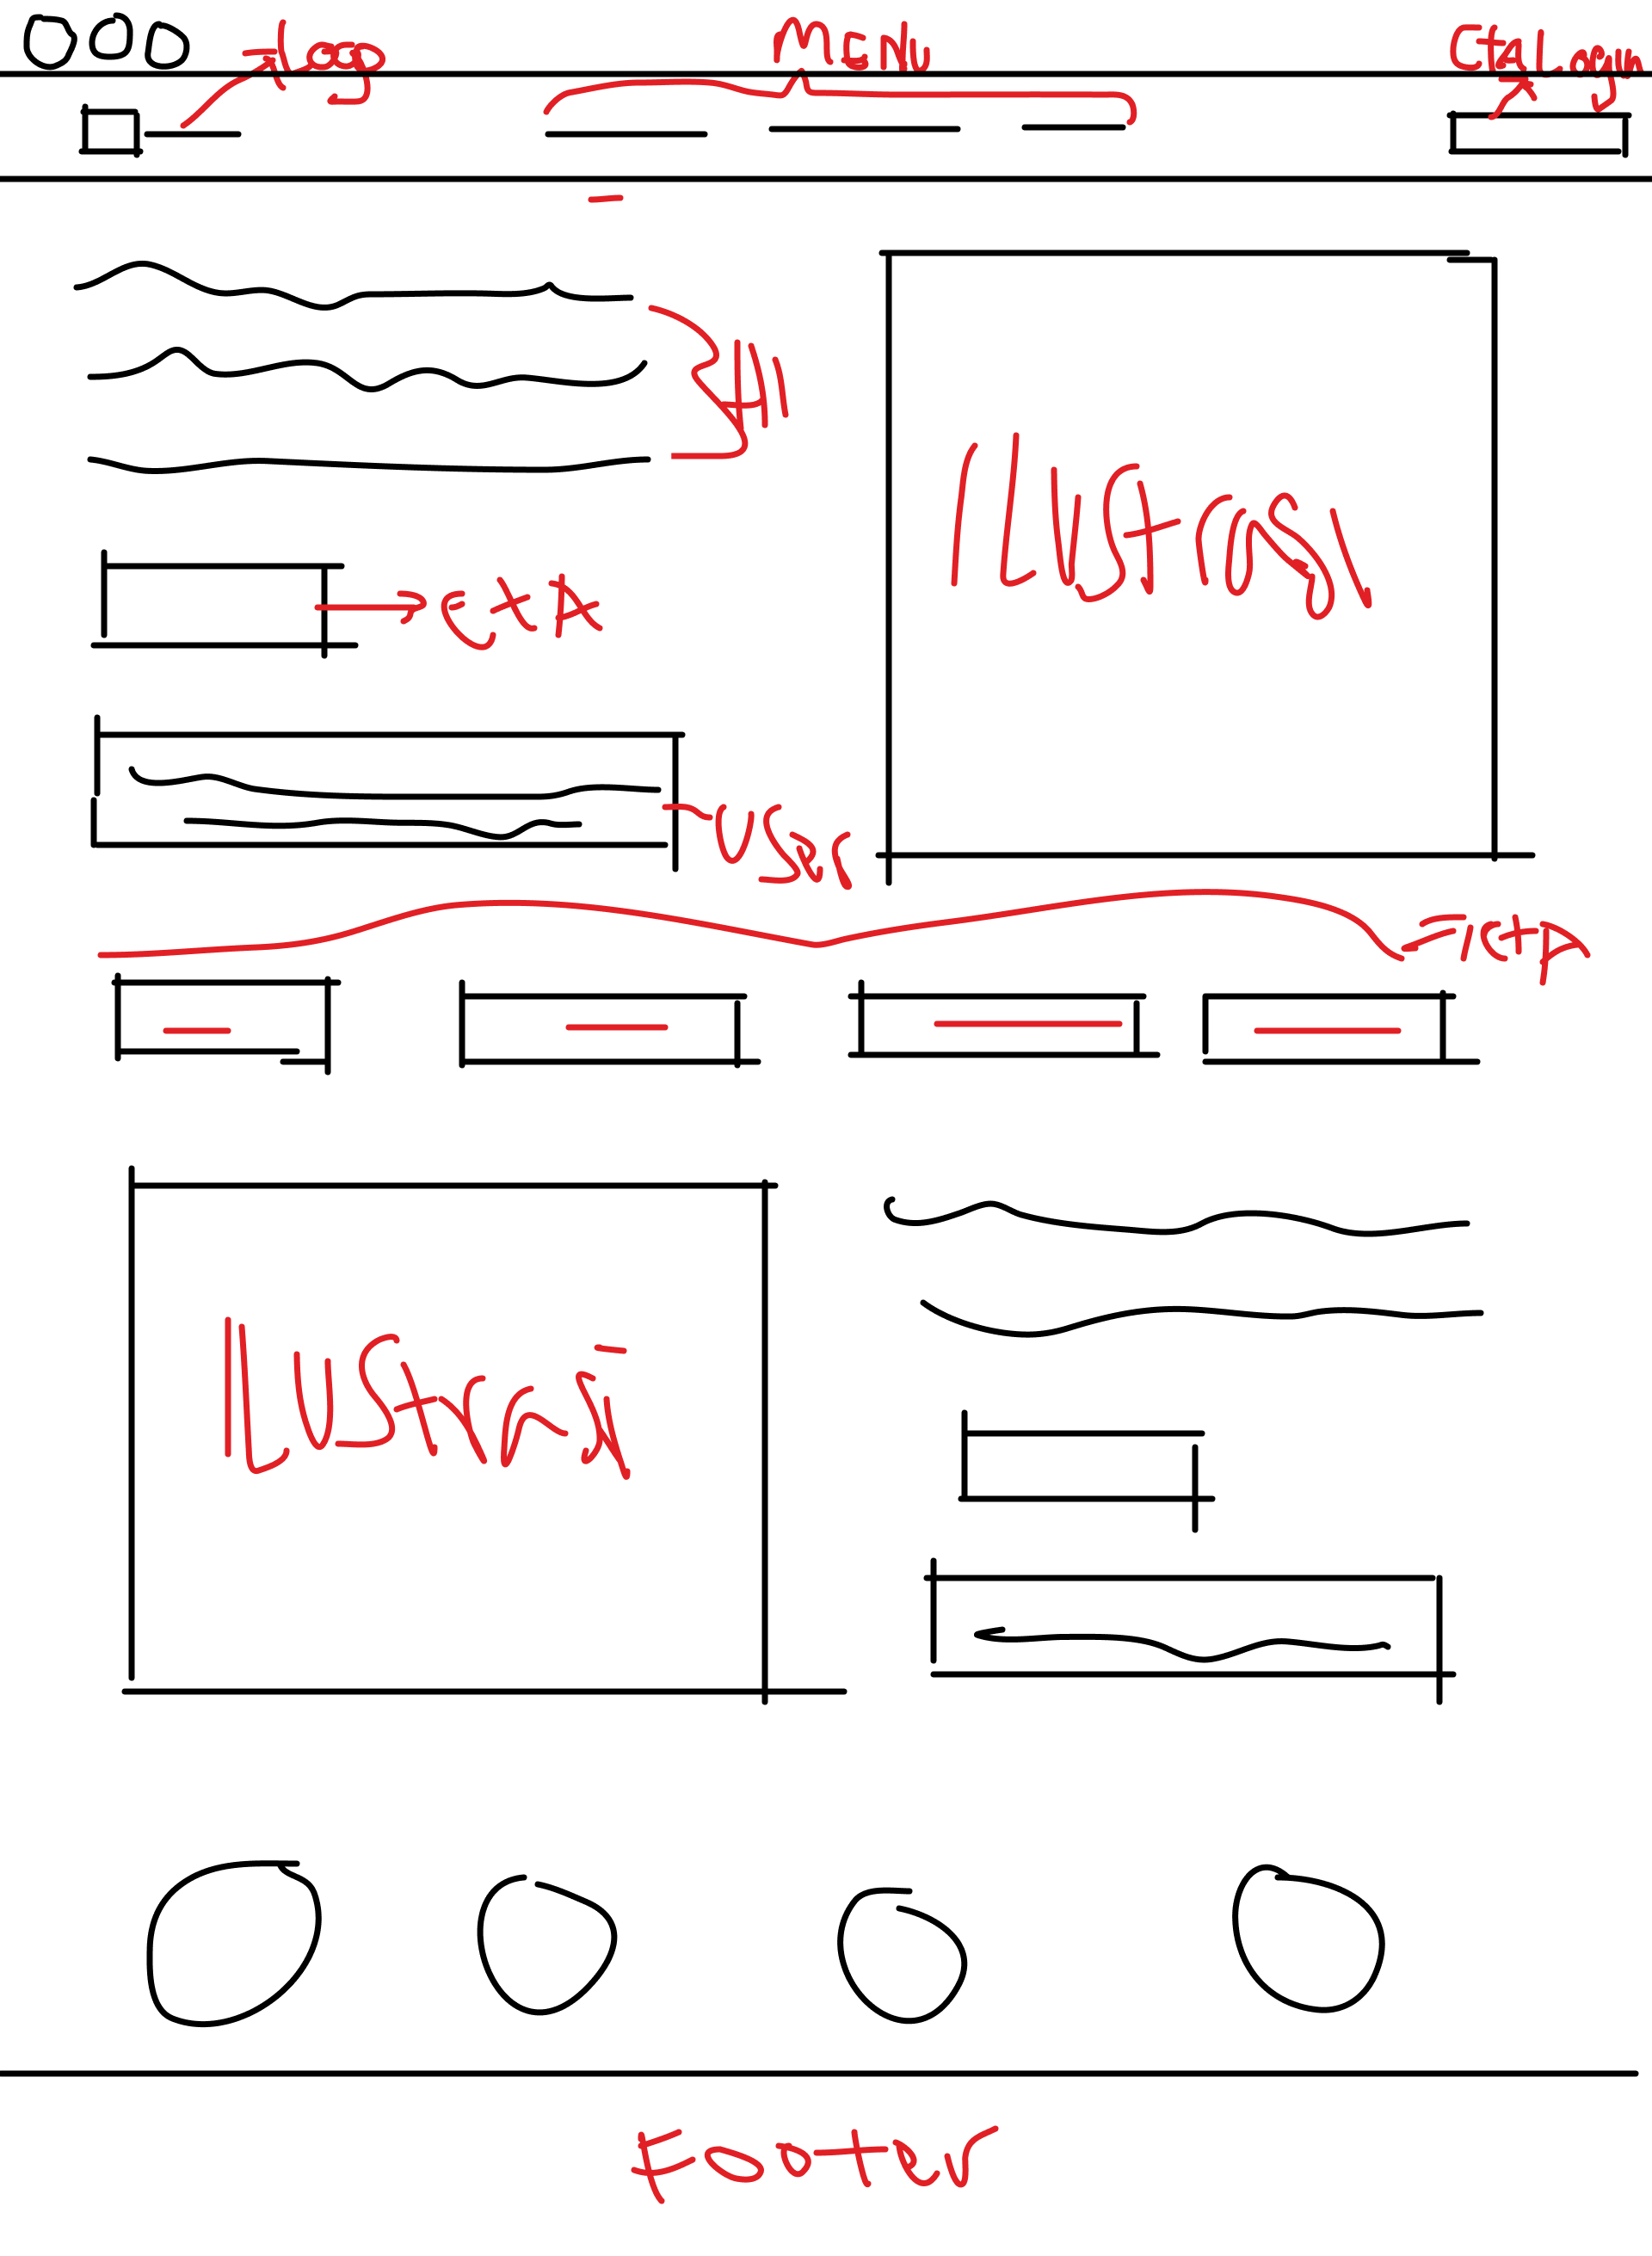 Logo
Menu
H1
ILUStrasi
CtA
User
CtA
ILUStrasi
Footer